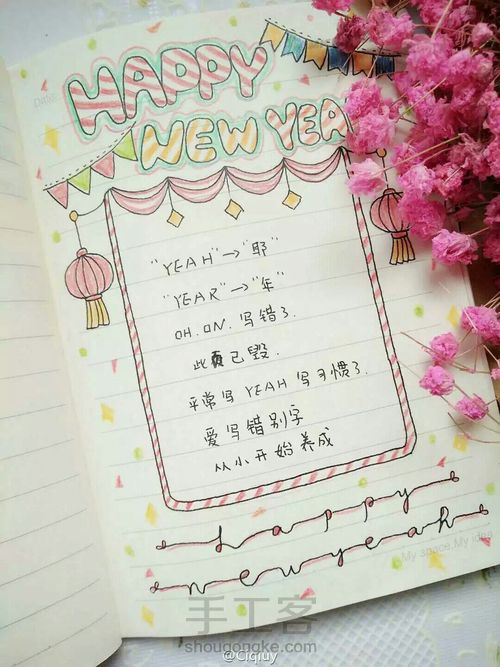 DATE:
HAPPY
NEW YEA
"YEAH"→"耶"
"YEAR"→"年"
OH.ON.写错了.
此页已毁.
平常写YEAH写习惯了.
爱写错别字
从小开始养成
happy
newyeah
My space.My idea
手工客
shougongke.com
@Ciqiuy